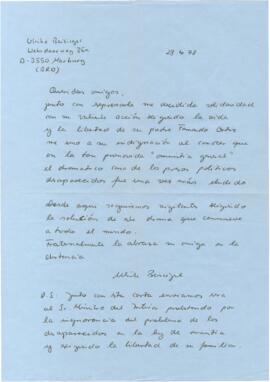 Ulrike Beisiegel
D-3550 Marburg
(BRD)
29.4.78
Queridos amigos,
junto con expresarle mi decidida solidaridad
con su valiente acción exigiendo la vida
y la libertad de su padre Fernando
me uno a su indignación al conocer que
en la tan pronosida "amnistía general"
el dramático caso de los presos políticos
desaparecidos fue una vez más eludido
Desde aquí seguiremos vigilantes exigiendo
la solución de este drama que conmueve
a todo el mundo.
Fraternalmente la abraza su amiga en la
distancia
Ulrike Beisiegel
P.S.: junto con esta carta enviamos una
al S. Ministro del Interior protestando por
la ignorancia del problema de los
desaparecidos en la ley de amnistía
y exigiendo la libertad de su familiar